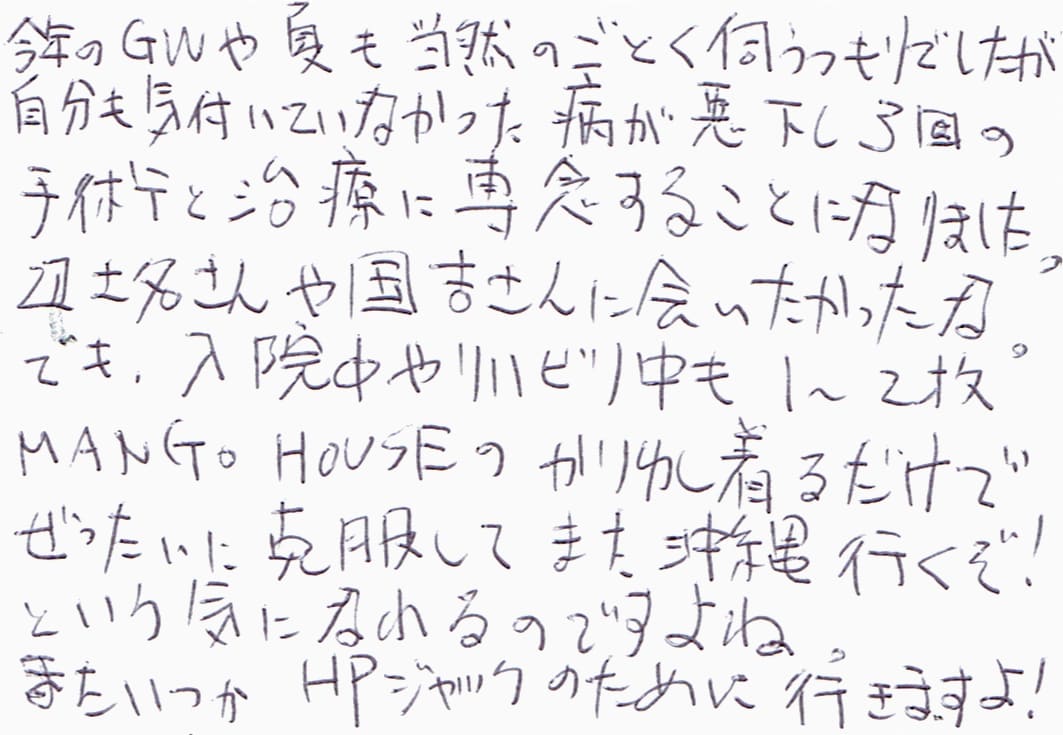 今年のGWや夏も当然のごとく伺うつもりでしたが
自分も気付いていなかった病が悪下し3回の
手術と治療に専念することになりました。
辺土名さんや国吉さんに会いたかったな。
でも、入院中やリハビリ中も1~2枚
MANGO HOUSEのかりゆし着るだけで
ぜったいに克服してまた沖縄行くぞ!
という気になれるのですよね。
またいつかHPジャックのために行きますよ!